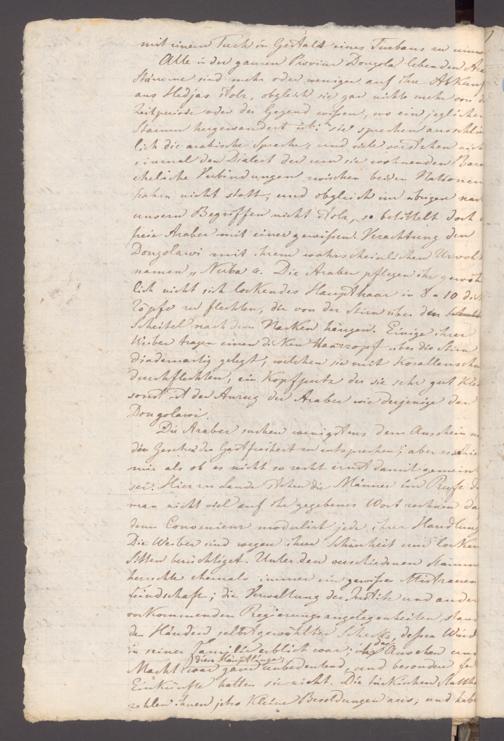 mit einem Tuch in Gestalt eines Turbans zu umw
Alle in der ganzen Provinz Dongola lebenden Ara
Stämme sind mehr oder weniger auf ihre Abkunf
aus Hedjas stolz, obgleich sie gar nichts mehr von d
Zeitperiode oder der Gegend wissen, wo ein jeglicher
Stamm hergewandert ist: sie sprechen ausschlies
lich die arabische Sprache, und viele verstehen nich
einmal den Dialect der um sie wohnenden Bara
eheliche Verbindungen zwischen beiden Nationen
haben nicht statt, und obgleich im übrigen nac
unsern Begriffen nicht stolz, so betittelt doch d
freie Araber mit einer gewissen Verachtung den
Dongolawi mit ihrem wahrscheinlichen Urvolks
namen „Nuba“. Die Araber pflegen ihr gewöhn
lich nicht sich lockendes Haupthaar in 8 a 10 dick
Zöpfe zu flechten, die von der Stirn über den
Scheitel nach dem Nacken hängen. Einige ihrer
Weiber tragen einen dicken Haarzopf über die Stirn
diademartig gelegt, welchen sie mit Korallenschn
durchflechten, ein Kopfputz der sie sehr gut kleid
sonst ist der Anzug der Araber wie derjenige der
Dongolawi.
Die Araber suchen wenigstens dem Anschein n
den Gesetzen der Gastfreiheit zu entsprechen; aber es schie
mir als ob es nicht so recht ernst damit gemein
sei. Hier zu Lande stehen die Männer im Rufe d
man nicht viel auf ihr gegebenes Wort rechnen da
denn Convenienz modulirt jede ihrer Handlung
Die Weiber sind wegen ihrer Schönheit und locker
Sitten berüchtiget. Unter den verschiednen Stämme
herrschte ehemals immer ein gewisses Mistrauen
Feindschaft; die Verwaltung der Justitz und andere
vorkommenden Regierungsangelegenheiten stan
den Händen selbstgewählter Scheche, deßen Würd
in seiner Familie erblich war; ihr Ansehen und
Macht war ganz unbedeutend, und besondere
dieser Häuptlinge
Einkünfte hatten sie nicht. Die türkischen Statth
zahlen ihnen jetzo kleine Besoldungen aus, und habe